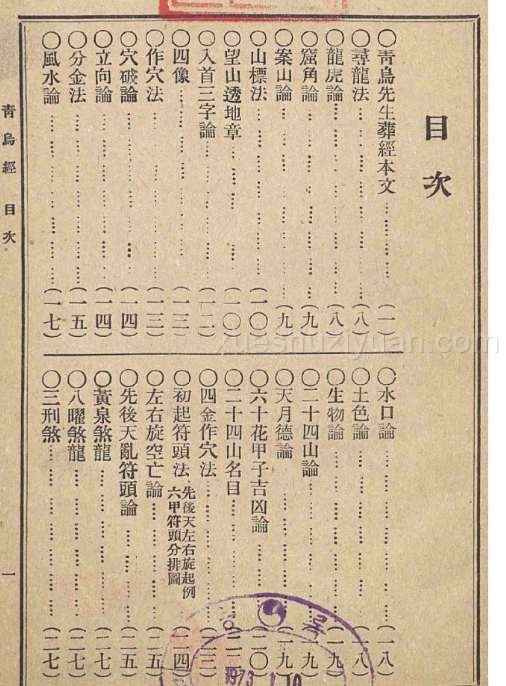 目次
○靑烏先生葬經本文……(一)
○尋龍法……(八)
○龍虎論……(八)
○窟角論……(九)
○案山論……(九)
○山標法……(一〇)
○望山透地章……(一〇)
○入首三字論……(一二)
○四像……(一三)
○作穴法……(一三)
○穴破論……(一四)
○立向論……(一四)
○分金法……(一五)
○風水論……(一七)
○水口論……(一八)
○土色論……(一八)
○生物論……(一九)
○二十四山論……(一九)
○天月德論……(一九)
○六十花甲子吉凶論……(二〇)
○二十四山名目……(二二)
○四金作穴法……(二三)
○初起符頭法 先後天左右旋起例 六甲符頭分排圖……(二四)
○左右旋空亡論……(二五)
○先後天亂符頭論……(二五)
○黃泉煞龍……(二七)
○八曜煞龍……(二七)
○三刑煞……(二七)
靑烏經 目次 一
xueshuziyuan.com
1973. 1. 10